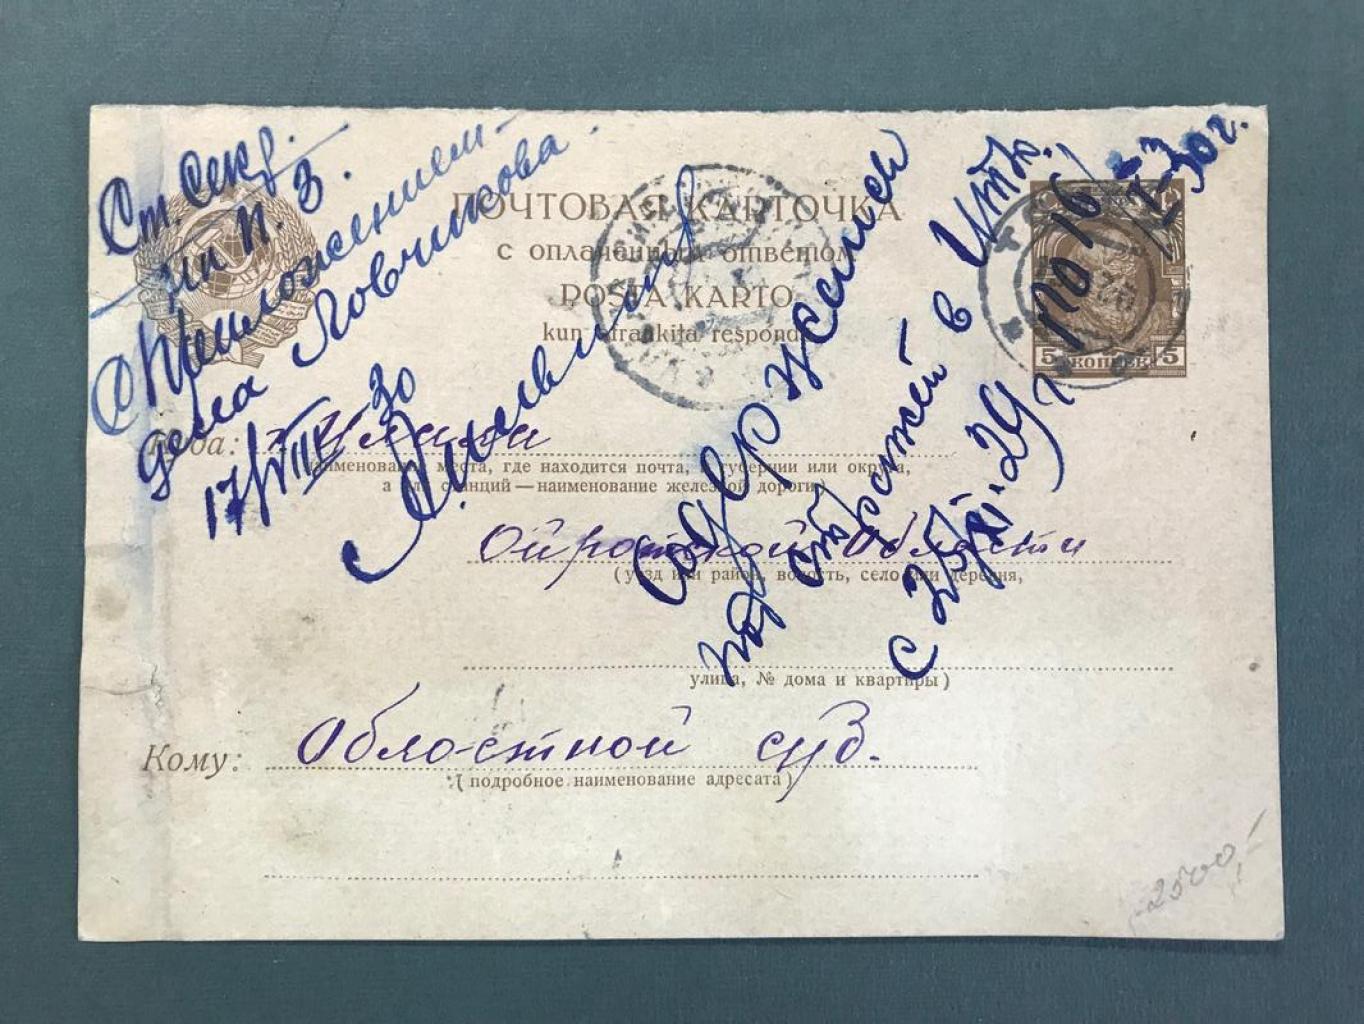 Ст. секр.
п. 3.
С приложением
дела Ловчикова.
17/VIII 30
ПОЧТОВАЯ КАРТОЧКА
с оплаченным ответом
POSTA KARTO
kun afrankita respondo
5 КОПЕЕК 5
Содержался
под стражей в
с 25/XI-29 г по 16/
-30 г.
Куда: г. Улала
(наименование места, где находится почта, и губернии или округа,
а для станций — наименование железной дороги)
Ойротской области
(уезд или район, волость, село или деревня,
улица, № дома и квартиры)
Кому: Областной суд.
(подробное наименование адресата)
2500,-